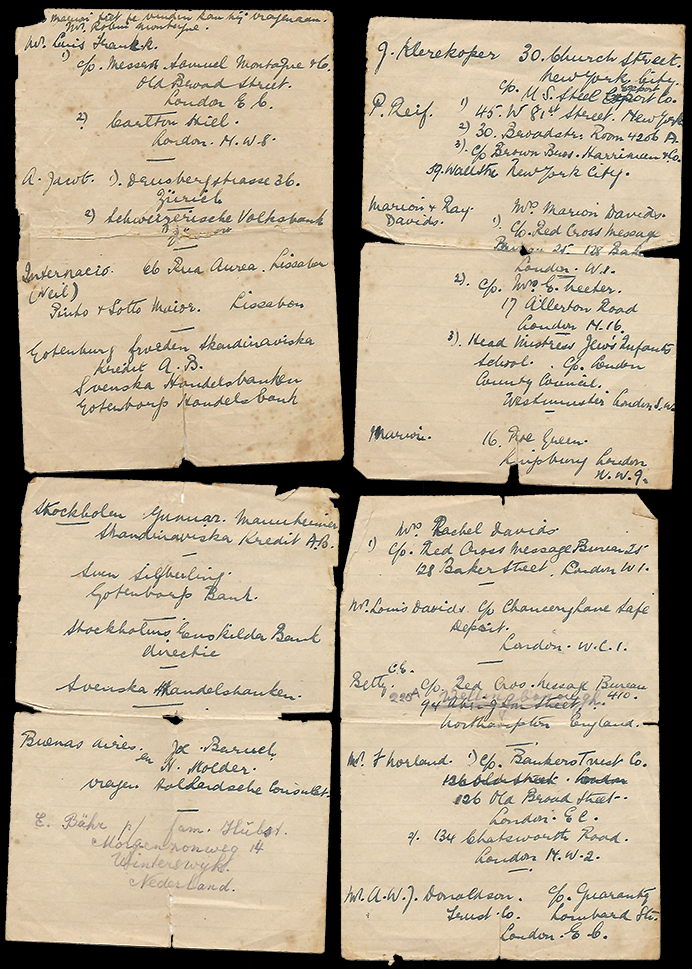 Marion niet te vinden kan hij vragen aan
Mr. Robin Montagne.
Mr. Louis Frank.
1) c/o. Messrs. Samuel Montague & Co.
Old Broad Street.
London E C.
2) Carlton Hill.
London. N.W.8.
A. Jacob. 1). Drusbergstrasse 36.
Zürich
2) Schweizerische Volksbank
Internacio. 66 Rua Aurea. Lissabon
(Neil)
Pinto & Sotto Maior. Lissabon
Gotenburg Sweden Skandinaviska
Kredit A.B.
Svenska Handelsbanken
Gotenborgs Handelsbank
J. Klerekoper 30. Church Street.
New York City.
c/o. U.S. Steel Export Co.
P. Reif. 1) 45. W 81st Street. New York
2) 30. Broadstr. Room 4206 A.
3). c/o Brown Bros. Harriman & Co.
59. Wallstr. New York City.
Marion & Ray Davids. Mrs Marion Davids.
1) c/o. Red Cross Message
Bureau 25. 128 Baker
London. W.1.
2). c/o. Mrs. E.
17 Allerton Road
London N.16.
3). Head Mistress Jew's Infants
School. c/o. London
County Council.
Westminster London S.W.
Marion. 16. Roe Green.
Kingsbury London
N.W.9.
Stockholm Gunnar. Mannheimer
Skandinaviska Kredit A.B.
Sven Silfverling.
Gotenborgs Bank.
Stockholms Enskilda Bank
directie
Svenska Handelsbanken.
Buenos Aires. Jx. Baruch
en H. Molder.
vragen Hollandsche Consulat.
E. Bähr p/ fam. Hübst.
Morgenzonweg 14
Winterswijk.
Nederland.
Mrs Rachel Davids
1) c/o. Red Cross Message Bureau 25
128 Baker Street. London W1.
Mr. Louis Davids c/o Chancery Lane Safe
Deposit.
London. W.C.1.
Betty c/o. Red Cros. Message Bureau 410.
94 Abington Street
Northampton England.
Mr. F Norland. 1) c/o. Bankers Trust Co.
126 Old Street. London
126 Old Broad Street.
London. E C.
2. 134 Chatsworth Road.
London N.W-2.
Mr. A.W.J. Donaldson. c/o. Guaranty
Trust Co. Lombard Str.
London. E C.